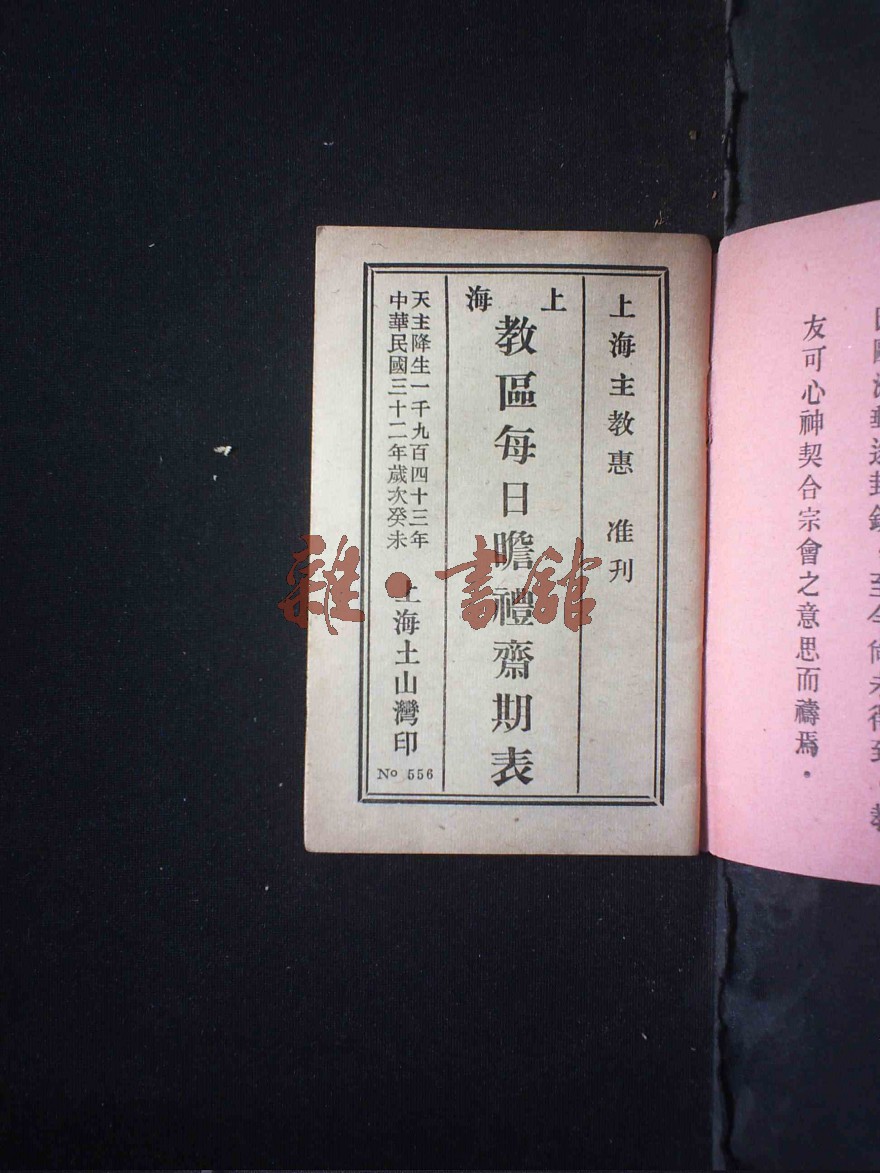 友可心神契合宗會之意思而禱焉．
上海主教惠　准刊
上海
教區每日瞻禮齋期表
天主降生一千九百四十三年
中華民國三十二年歲次癸未
上海土山灣印
No 556
雜·書館